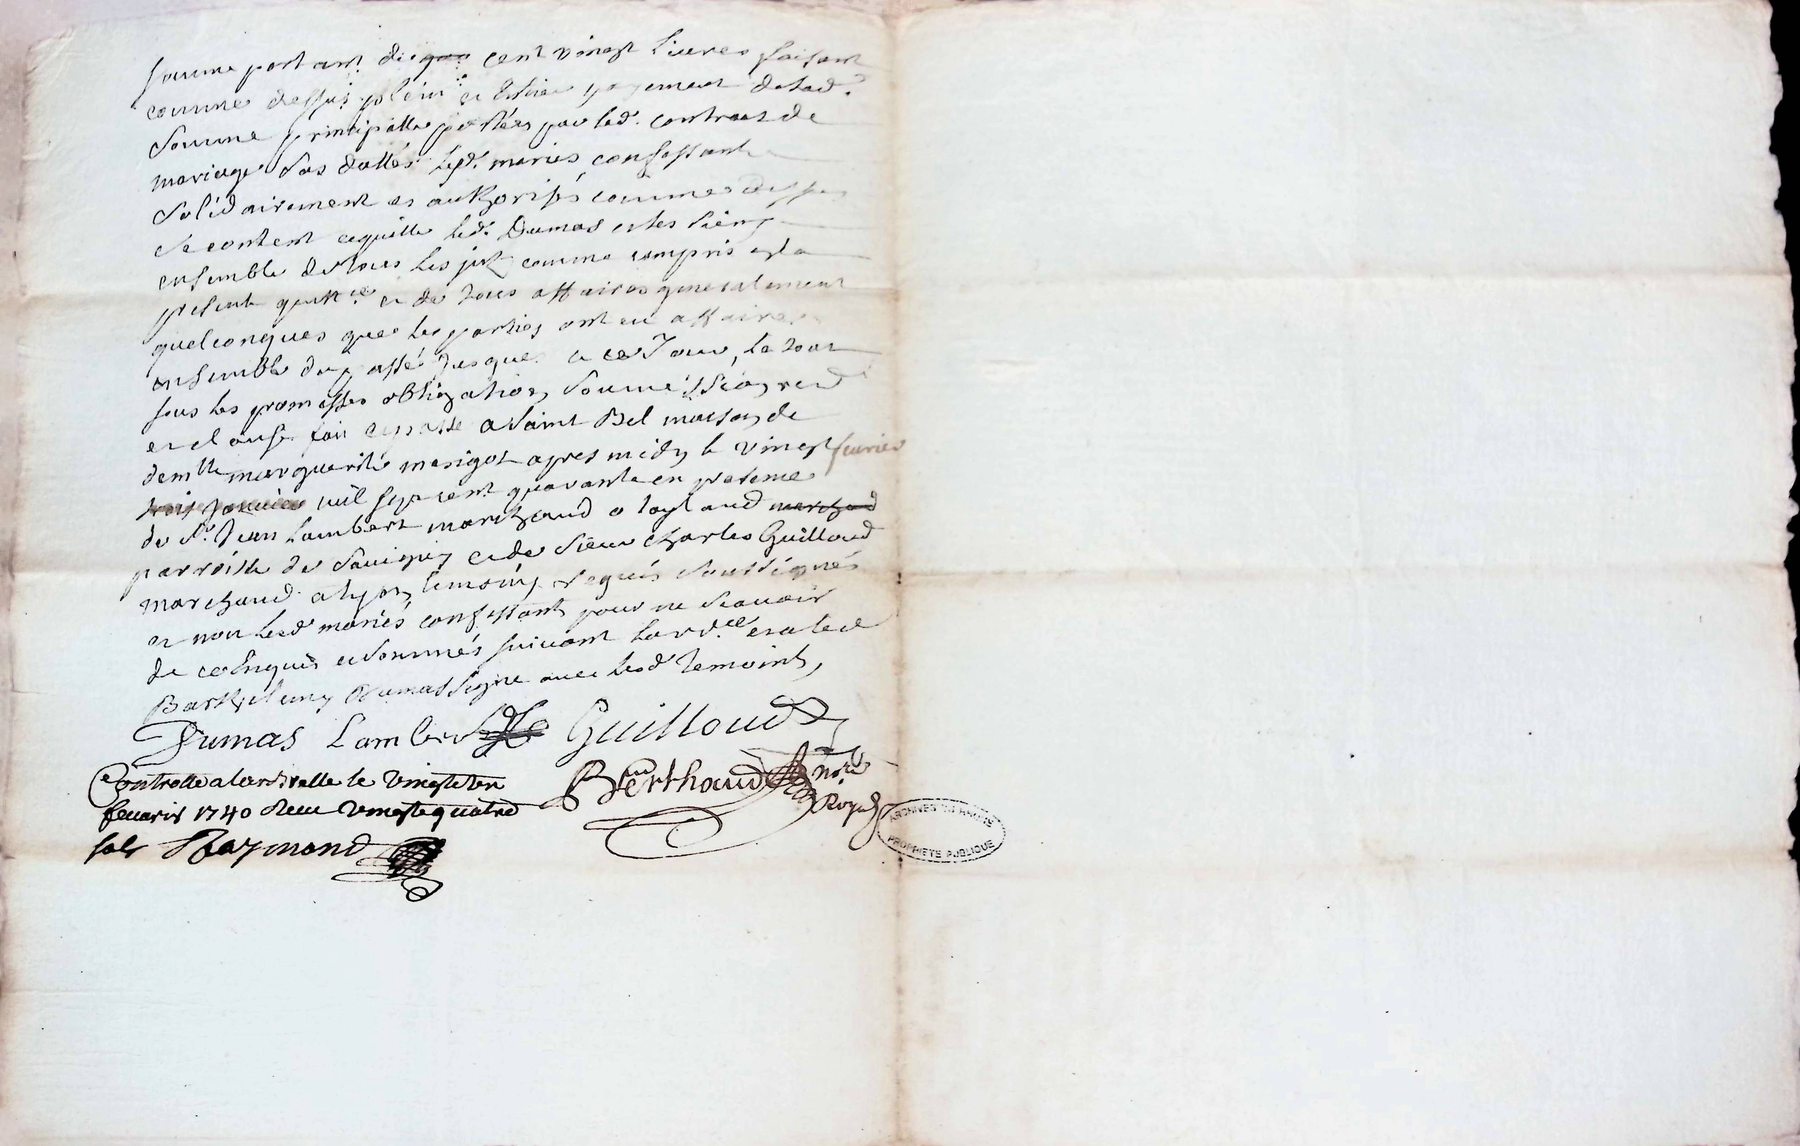 somme portant cent vingt livres faisant
comme dessus plein et entier payement de lad.
somme principalle portées par led. contract de
mariage sus dattés lesd. mariés confessant
solidairement et authorisés comme dessus
se content et quitte led. Dumas et les siens
ensemble de tous les comme compris a la
presente quitt.ce et de tous affaires generalement
quelconques que les parties ont eu affaires
ensemble du passé jusques a ce jour, le tout
sous les promesses obligations
et clause fait et passé a Saint Bel maison de
demlle marguerite masigot apres midy le vingt feurier
trois janvier mil sept cent quarante en presence
de Sr. Jean Lambert marchand a marchand
parroisse de Sauigny et de sieur charles Guilloud
marchand a lyon temoins requis soussignés
et non lesd. mariés confessants pour ne scauoir
de ce enquis et sommés suivant lord.ce et a led.
Barthelemy Dumas signé auec lesd. temoins,
Dumas Lambert Guilloud
Berthaud no.re
Royal
Controlle a larbrelle le vingt et
feurier 1740 Receu vingt quatre
sols Raymond
ARCHIVES DU RHÔNE
PROPRIÉTÉ PUBLIQUE